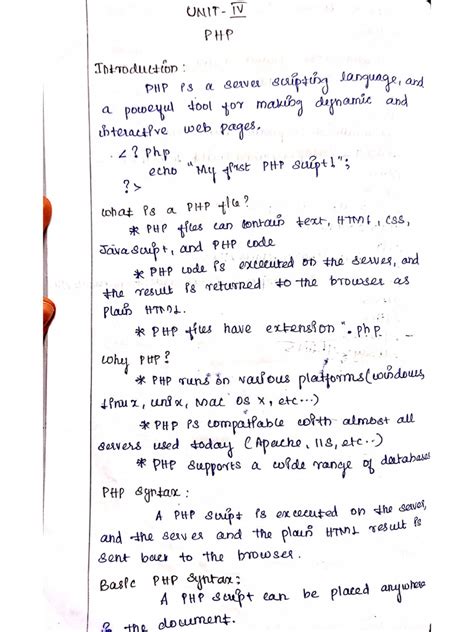 UNIT - IV
PHP
Introduction :
PHP is a server scripting language, and
a powerful tool for making dynamic and
interactive web pages.
<? php
echo "My first PHP script!";
?>
What is a PHP file?
* PHP files can contain text, HTML, CSS,
JavaScript, and PHP code
* PHP code is executed on the server, and
the result is returned to the browser as
plain HTML.
* PHP files have extension ".php
Why PHP?
* PHP runs on various platforms (windows,
linux, unix, Mac OS X, etc...)
* PHP is compatiable with almost all
servers used today (Apache, IIS, etc..)
* PHP supports a wide range of databases
PHP Syntax :
A PHP script is executed on the server,
and the server and the plain HTML result is
sent back to the browser.
Basic PHP Syntax :
A PHP script can be placed anywhere
in the document.